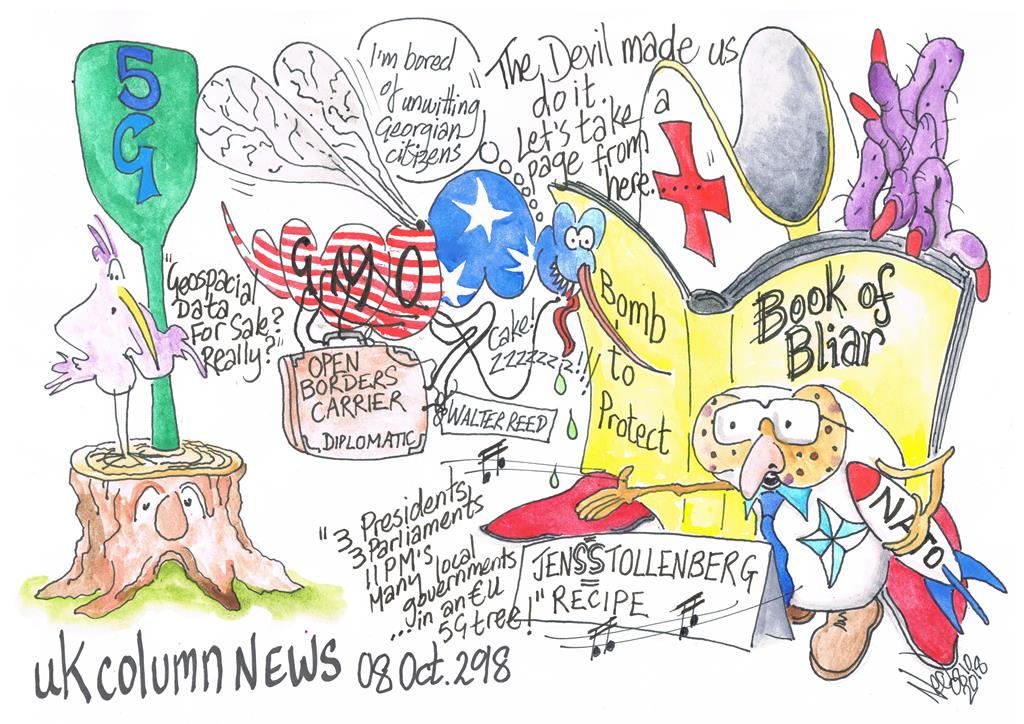 5G
I'm bored
of unwitting
Georgian
citizens
The Devil made us
do it.
Let's take a
page from
here....
"Geospacial
Data
For Sale?
Really?"
GMO
OPEN
BORDERS
CARRIER
DIPLOMATIC
Cake!
zzzzzzz!!
WALTER REED
Bomb
to
Protect
Book of
Bliar
"3 Presidents,
3 Parliaments
11 PM's
Many local
governments
... in an €U
5G tree!"
JEN$$TOLLENBERG
"RECIPE
NATO
UK COLUMN NEWS 08 Oct. 2918